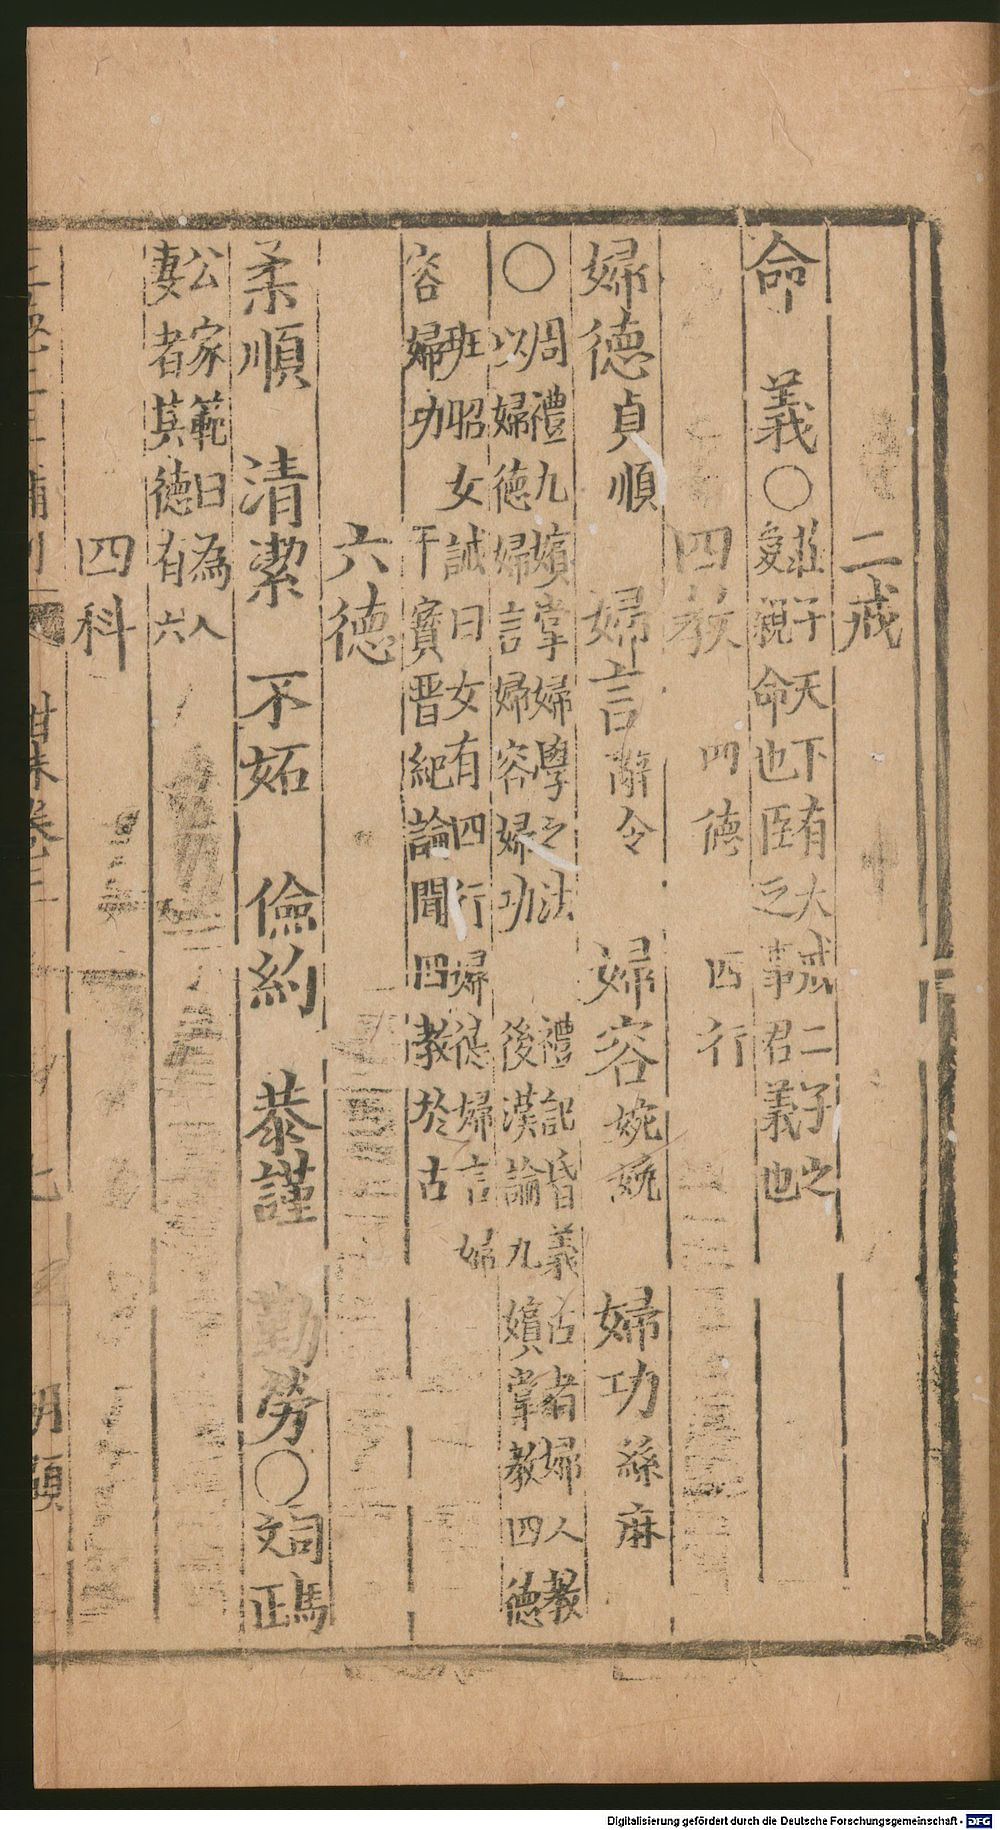 二戒
命　義〇莊子天下有大戒二子之
愛親命也臣之事君義也
四教　四德　四行
婦德貞順　婦言辭令　婦容婉娩　婦功絲麻
〇周禮九嬪掌婦學之法
以婦德婦言婦容婦功
禮記昏義古者婦人教
後漢論九嬪掌教四德
班昭女誡曰女有四行婦德婦言婦
容婦功
干寶晋紀論聞四教於古
六德
柔順　清潔　不妬　儉約　恭謹　勤勞〇司馬
文正
公家範曰為人
妻者其德有六
四科
Digitalisierung gefördert durch die Deutsche Forschungsgemeinschaft - DFG